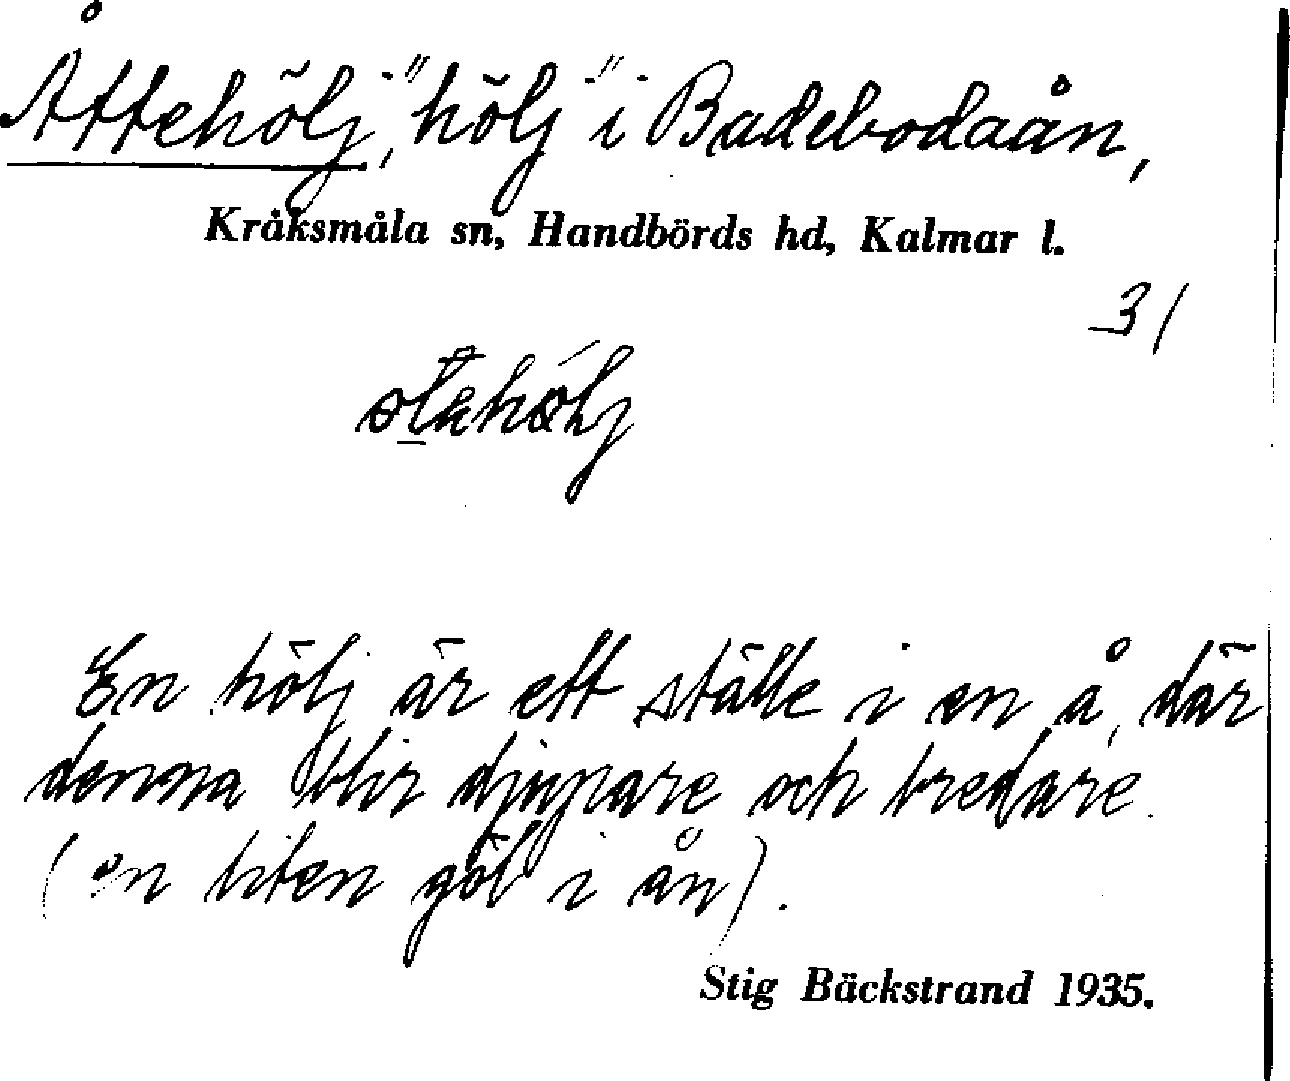 Åttehölj, "hölj" i Badebodaån,
Kråksmåla sn, Handbörds hd, Kalmar l.
31
En hölj är ett ställe i en å, där
denna blir djupare och bredare.
(en liten göl i ån).
Stig Bäckstrand 1935.